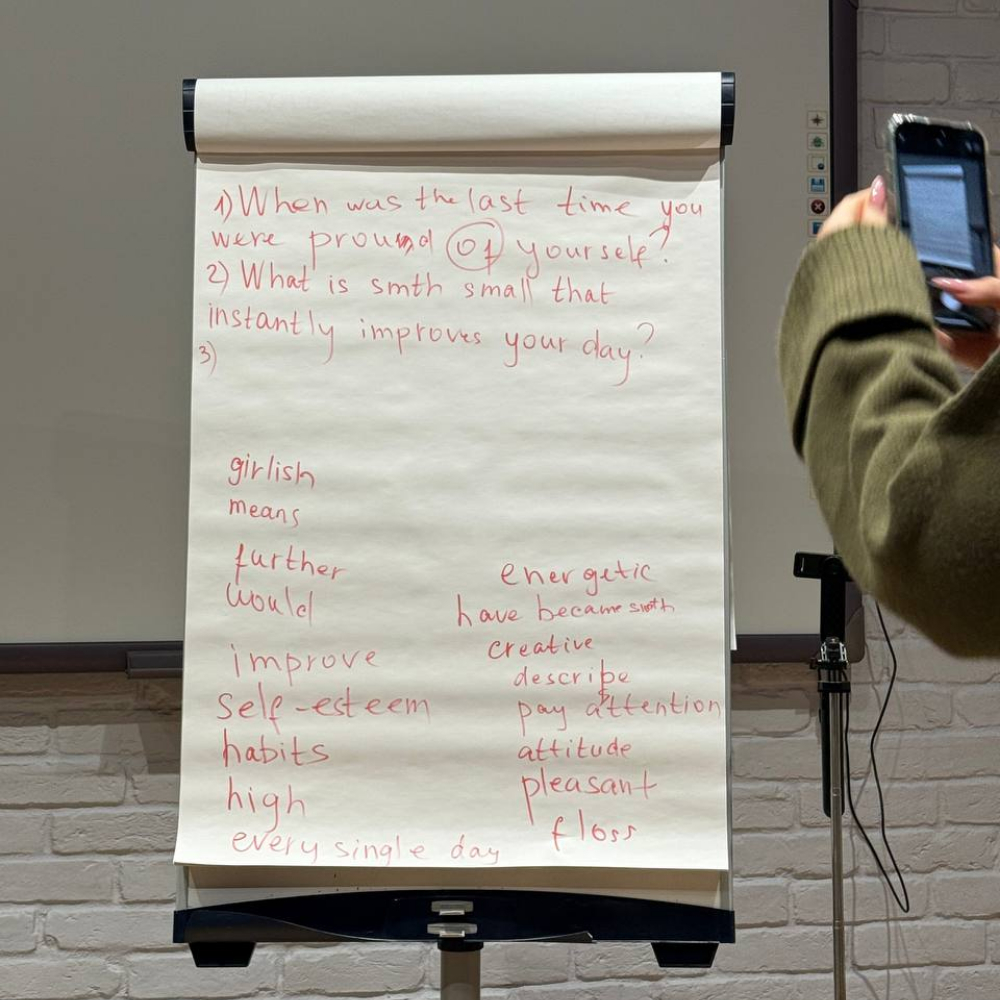 1) When was the last time you
were pround of yourself?
2) What is smth small that
instantly improves your day?
3)
girlish
means
further
would
improve
self-esteem
habits
high
every single day
energetic
have became smth
creative
describe
pay attention
attitude
pleasant
floss